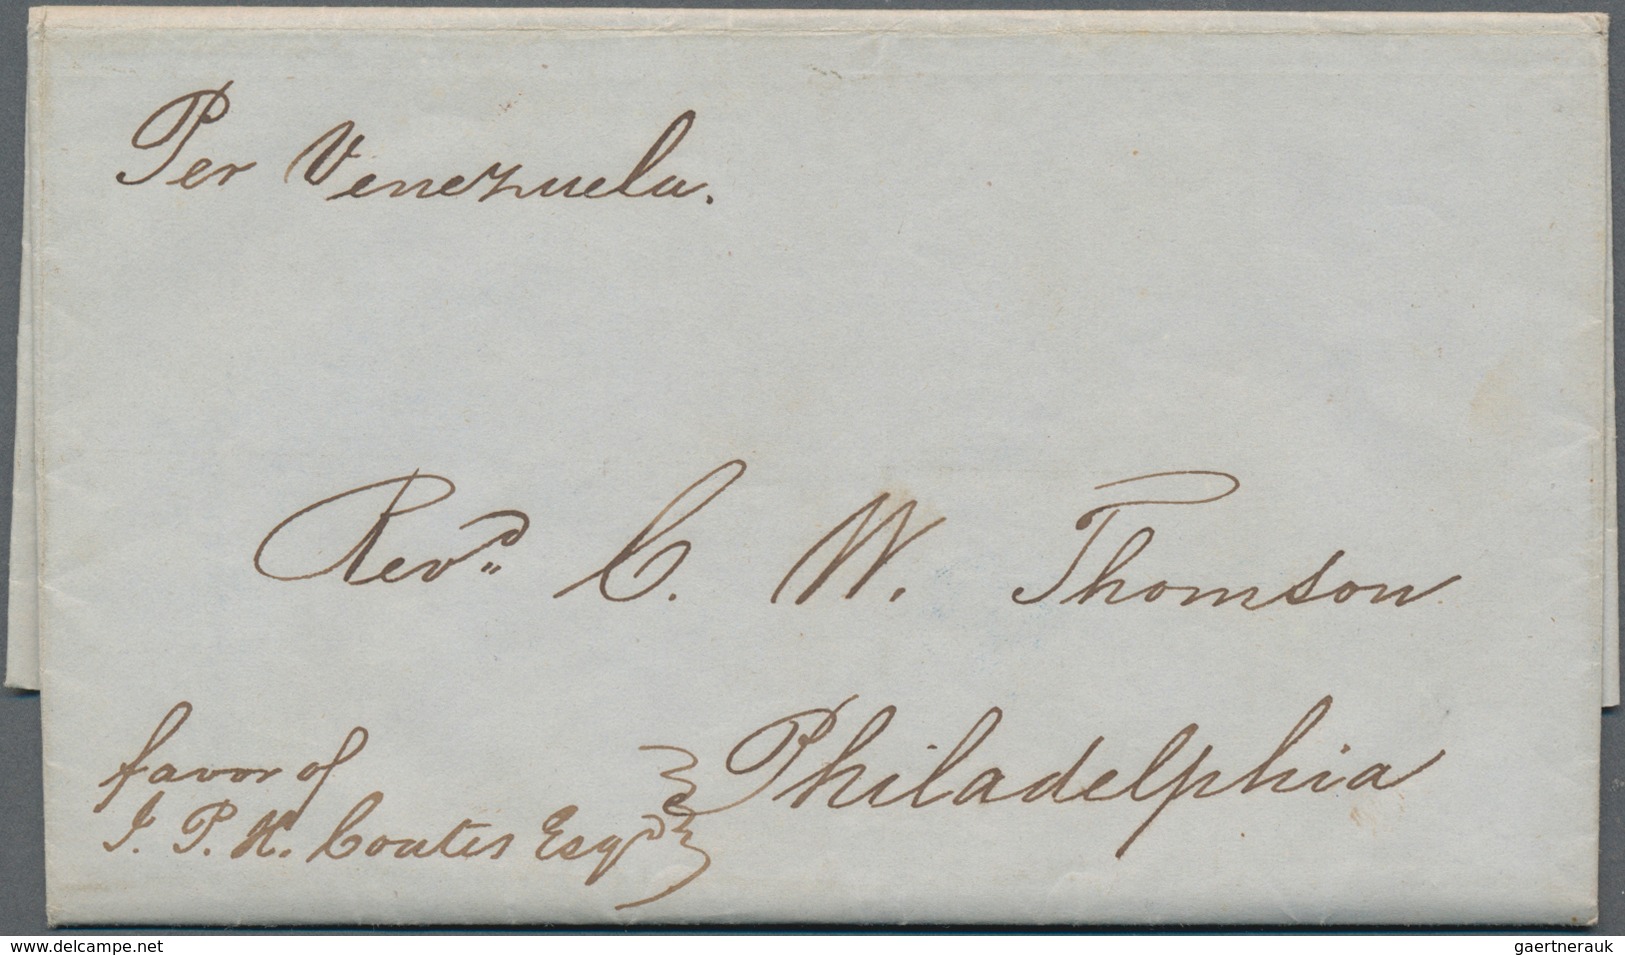 Per Venezuela.
Revd. C. W. Thomson
Philadelphia
favor of
J. P. H. Coates Esqr
www.delcampe.net
gaertnerauk